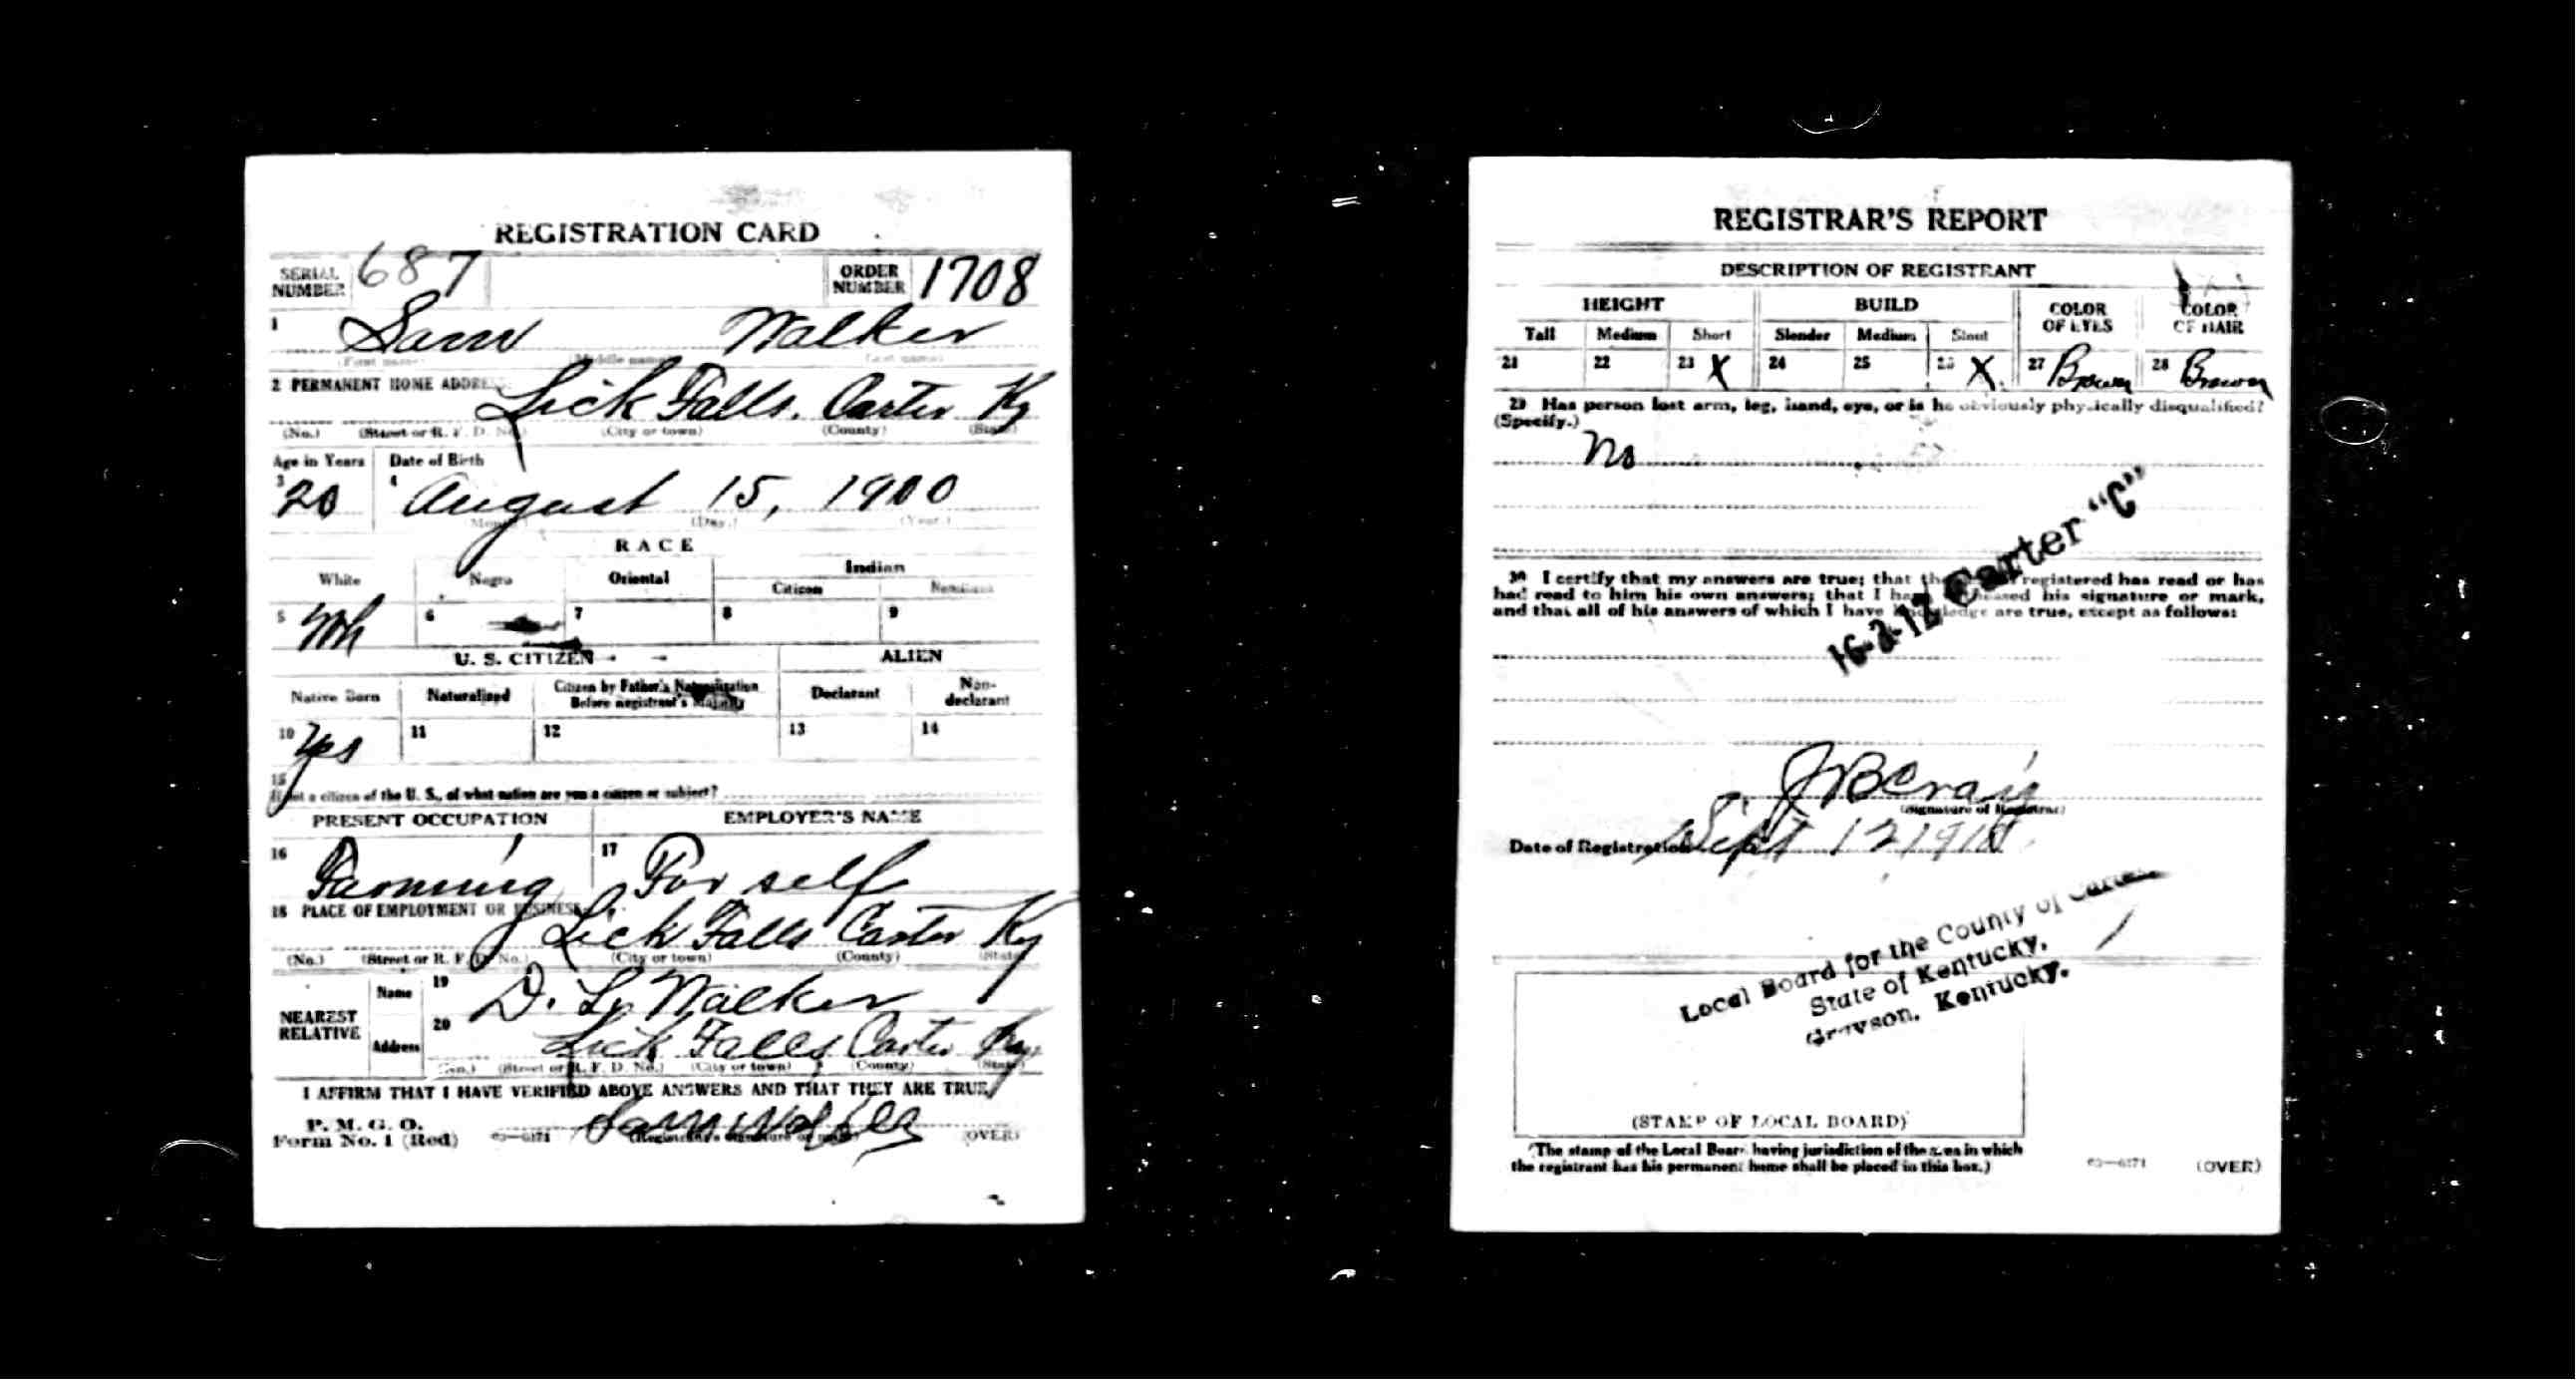 REGISTRATION CARD
SERIAL NUMBER 687 ORDER NUMBER 1708
1 Sam Walker
(First name) (Middle name) (Last name)
2 PERMANENT HOME ADDRESS:
Lick Falls. Carter Ky
(No.) (Street or R. F. D. No.) (City or town) (County) (State)
Age in Years Date of Birth
3 20 4 August 15, 1900
(Month.) (Day.) (Year.)
RACE
White Negro Oriental Indian
Citizen Noncitizen
5 Wh 6 7 8 9
U. S. CITIZEN ALIEN
Native Born Naturalized Citizen by Father's Naturalization Before Registrant's Majority Declarant Non-declarant
10 Yes 11 12 13 14
15
If not a citizen of the U. S., of what nation are you a citizen or subject?
PRESENT OCCUPATION EMPLOYER'S NAME
16 Farming 17 For self
18 PLACE OF EMPLOYMENT OR BUSINESS:
Lick Falls Carter Ky
(No.) (Street or R. F. D. No.) (City or town) (County) (State)
NEAREST RELATIVE
Name 19 D. L. Walker
Address 20 Lick Falls Carter Ky
(No.) (Street or R. F. D. No.) (City or town) (County) (State)
I AFFIRM THAT I HAVE VERIFIED ABOVE ANSWERS AND THAT THEY ARE TRUE
P. M. G. O.
Form No. 1 (Red) 03—6171 Sam (Registrant's signature or mark) (OVER)
REGISTRAR'S REPORT
DESCRIPTION OF REGISTRANT
HEIGHT BUILD COLOR OF EYES COLOR OF HAIR
Tall Medium Short Slender Medium Stout
21 22 23 X 24 25 26 X 27 Brown 28 Brown
29 Has person lost arm, leg, hand, eye, or is he obviously physically disqualified?
(Specify.)
No
30 I certify that my answers are true; that the person registered has read or has
had read to him his own answers; that I have witnessed his signature or mark,
and that all of his answers of which I have knowledge are true, except as follows:
Carter "C"
(Signature of Registrar)
Date of Registration Sept 12 1918
Local Board for the County of Carter
State of Kentucky,
Grayson, Kentucky.
(STAMP OF LOCAL BOARD)
(The stamp of the Local Board having jurisdiction of the area in which
the registrant has his permanent home shall be placed in this box.)
03—6171 (OVER)